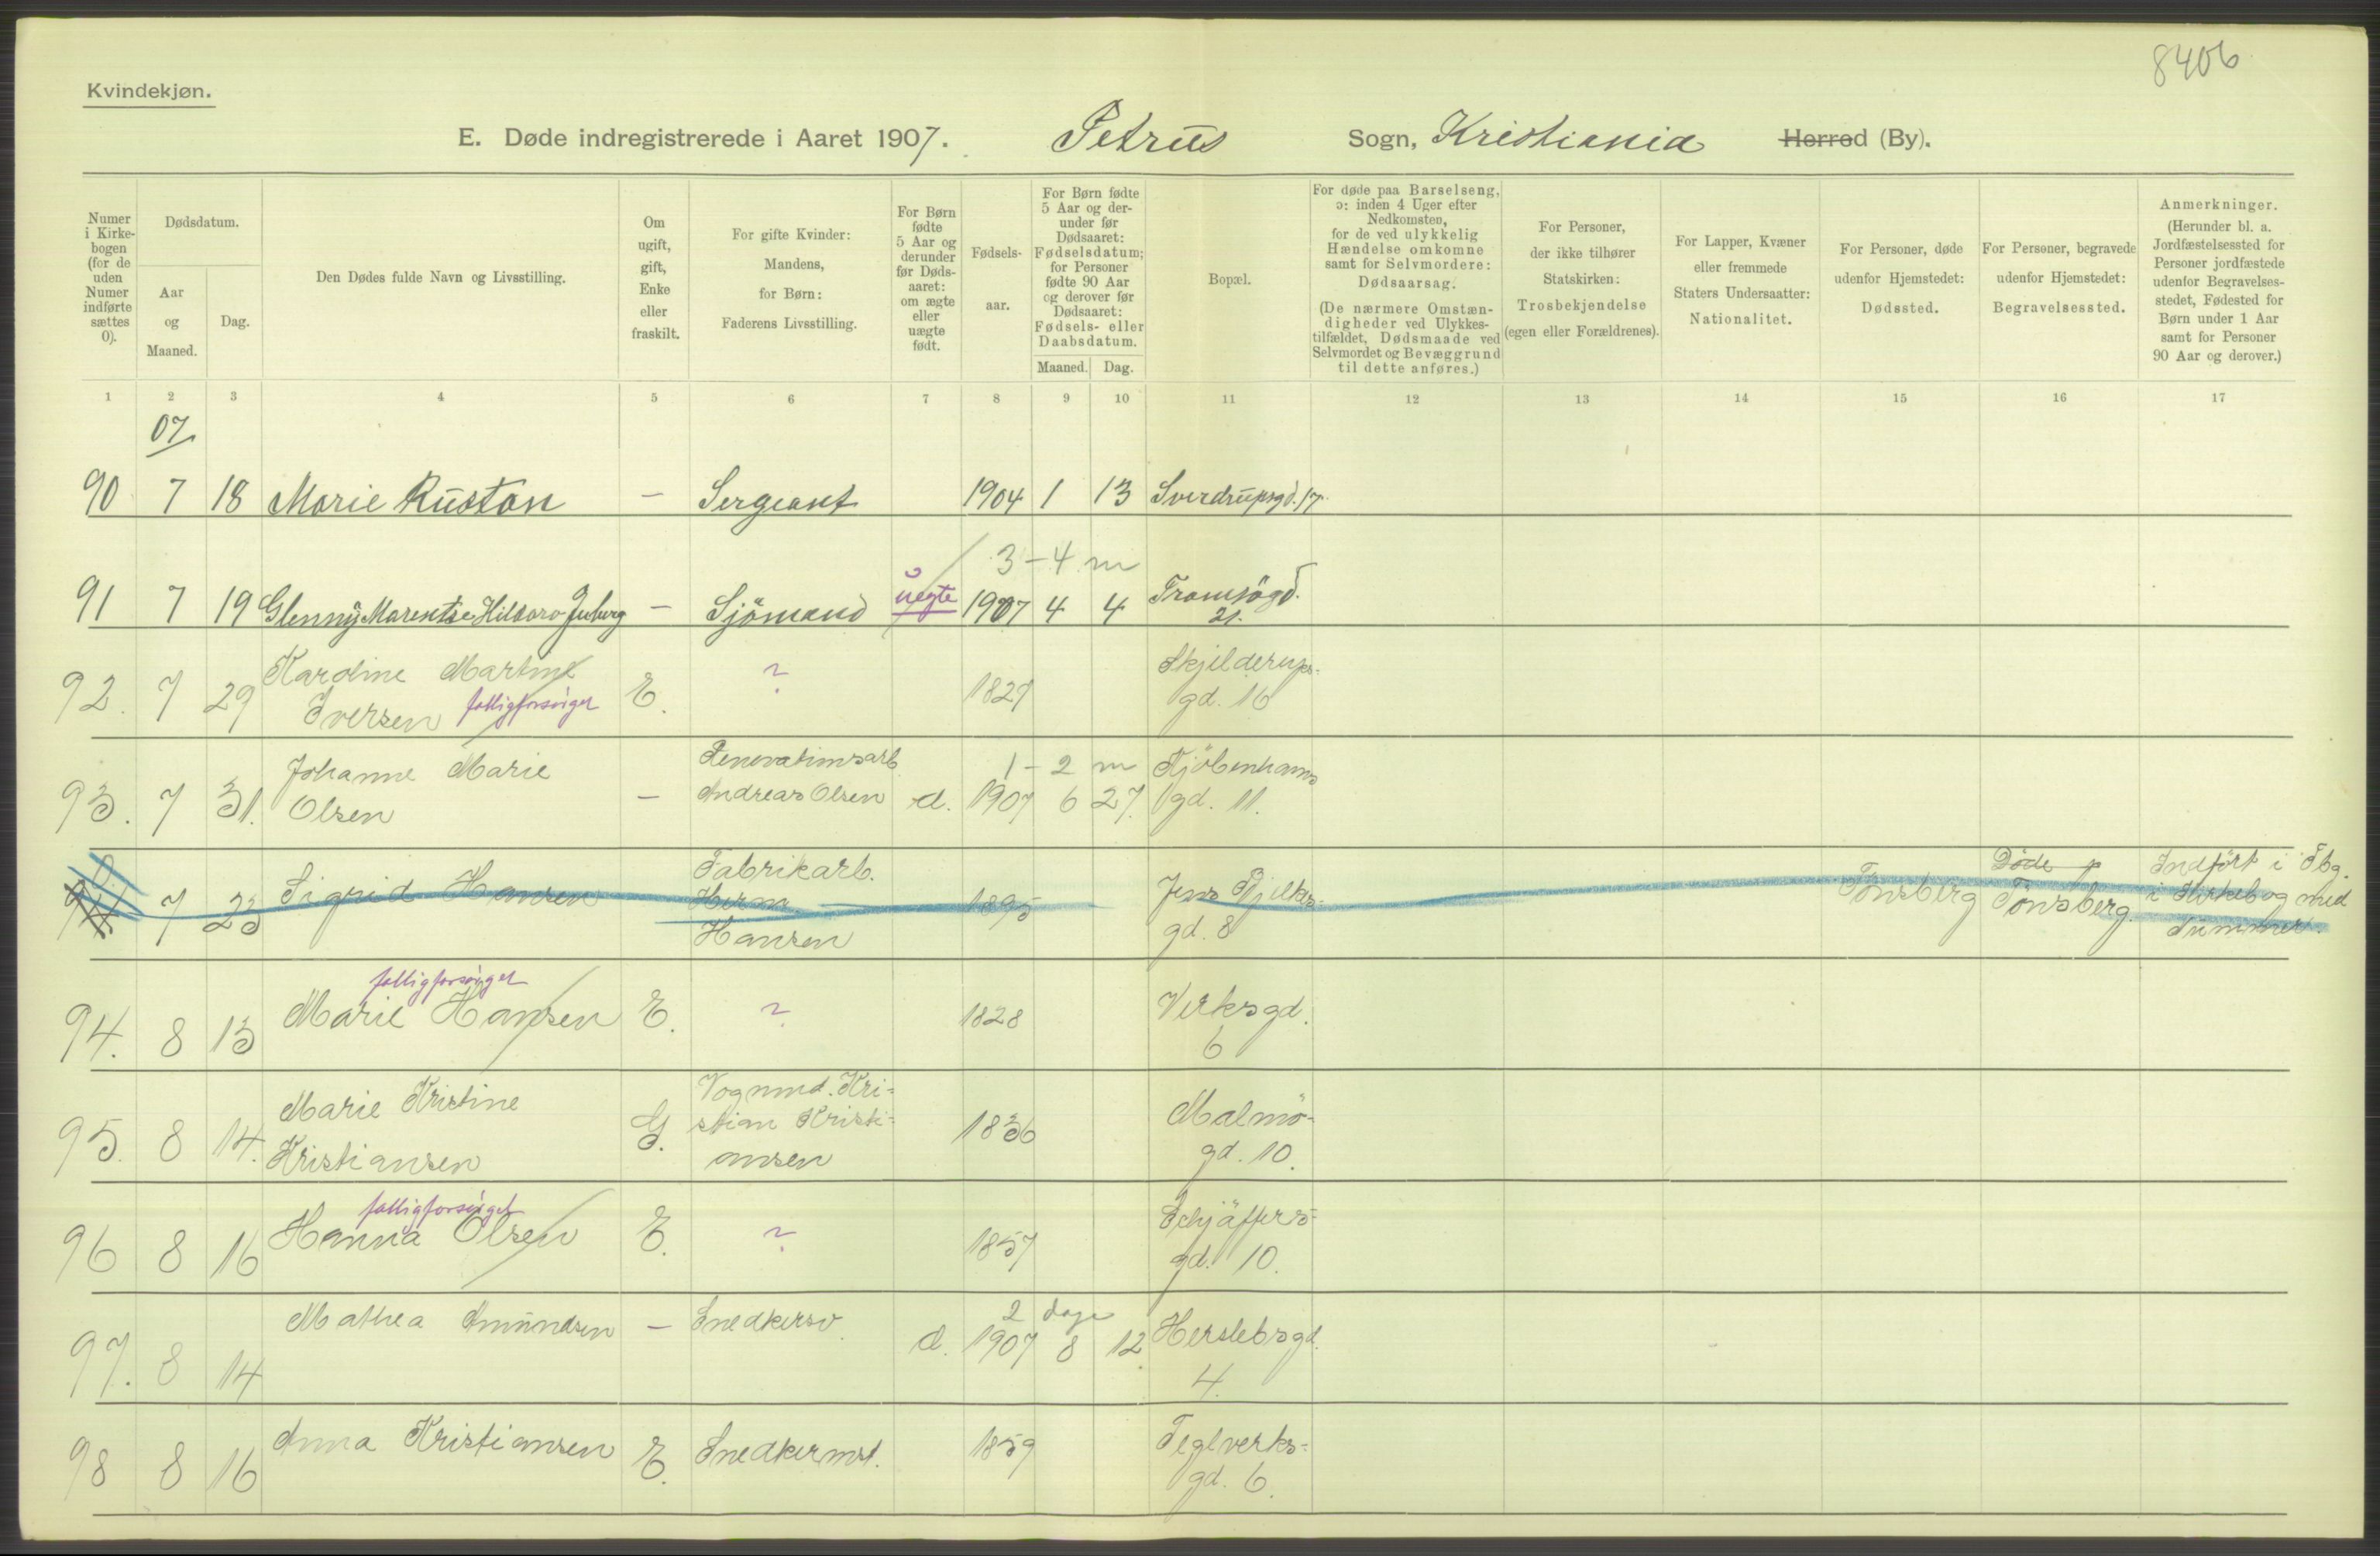 8406
Kvindekjøn.
E. Døde indregistrerede i Aaret 1907. Petrus Sogn, Kristiania Herred (By).
Numer i Kirkebogen (for de uden Numer indførte sættes 0).
Dødsdatum.
Aar og Maaned.
Dag.
Den Dødes fulde Navn og Livsstilling.
Om ugift, gift, Enke eller fraskilt.
For gifte Kvinder: Mandens, for Børn: Faderens Livsstilling.
For Børn fødte 5 Aar og derunder før Dødsaaret: om ægte eller uægte født.
Fødselsaar.
For Børn fødte 5 Aar og derunder før Dødsaaret: Fødselsdatum; for Personer fødte 90 Aar og derover før Dødsaaret: Fødsels- eller Daabsdatum.
Maaned. Dag.
Bopæl.
For døde paa Barselseng, ɔ: inden 4 Uger efter Nedkomsten, for de ved ulykkelig Hændelse omkomne samt for Selvmordere: Dødsaarsag.
(De nærmere Omstændigheder ved Ulykkestilfældet, Dødsmaade ved Selvmordet og Bevæggrund til dette anføres.)
For Personer, der ikke tilhører Statskirken: Trosbekjendelse (egen eller Forældrenes).
For Lapper, Kvæner eller fremmede Staters Undersaatter: Nationalitet.
For Personer, døde udenfor Hjemstedet: Dødssted.
For Personer, begravede udenfor Hjemstedet: Begravelsessted.
Anmerkninger. (Herunder bl. a. Jordfæstelsessted for Personer jordfæstede udenfor Begravelsesstedet, Fødested for Børn under 1 Aar samt for Personer 90 Aar og derover.)
1 2 3 4 5 6 7 8 9 10 11 12 13 14 15 16 17
07
90 7 18 Marie Rustan — Sergeant 1904 1 13 Sverdrupsgd. 17.
3 – 4 m
91 7 19 Glenny Marentse — Sjömand uegte 1907 4 4 Tromsögd.
21.
92. 7 29 Karoline Martine E. ? 1827 Skjelderups-
Iversen fattigforsörget gd. 16
Johanne Marie Renovationsarb. 1 – 2 m Kjöbenhavns
93. 7 31. Olsen — Andreas Olsen d. 1907 6 27. gd. 11.
7 23 Sigrid Hansen Fabrikarb. 1895 Jens Bjelkes- Tönsberg Döde Indfört i Tbg.
Herm. gd. 8 Tönsberg. i Kirkebog med
Hansen Nummer.
fattigforsörget
94. 8 13 Marie Hansen E. ? 1828 Verksgd.
6
Marie Kristine Vognmd. Kri-
95. 8 14. Kristiansen G. stian Kristi- 1836 Malmö-
ansen gd. 10.
fattigforsörget
96 8 16 Hanna Olsen E. ? 1857 Schjäffers-
gd. 10.
2 dage
97. 8 14 Mathea Amundsen — Snedkersv. d. 1907 8 12. Herslebsgd.
4.
98 8 16 Anna Kristiansen E. Snedkermst. 1859 Teglverks-
gd. 6.